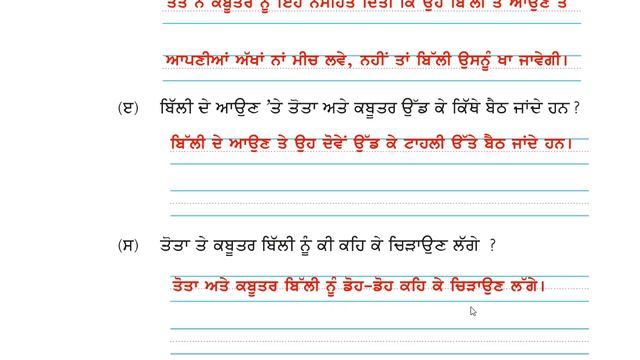 ਤੋਤੇ ਨੇ ਕਬੂਤਰ ਨੂੰ ਇਹ ਨਸੀਹਤ ਦਿੱਤੀ ਕਿ ਉਹ ਬਿੱਲੀ ਤੇ ਆਉਣ ਤੇ
ਆਪਣੀਆਂ ਅੱਖਾਂ ਨਾਂ ਮੀਚ ਲਵੇ, ਨਹੀਂ ਤਾਂ ਬਿੱਲੀ ਉਸਨੂੰ ਖਾ ਜਾਵੇਗੀ।
(ੲ) ਬਿੱਲੀ ਦੇ ਆਉਣ 'ਤੇ ਤੋਤਾ ਅਤੇ ਕਬੂਤਰ ਉੱਡ ਕੇ ਕਿੱਥੇ ਬੈਠ ਜਾਂਦੇ ਹਨ ?
ਬਿੱਲੀ ਦੇ ਆਉਣ ਤੇ ਉਹ ਦੋਵੇਂ ਉੱਡ ਕੇ ਟਾਹਲੀ ਉੱਤੇ ਬੈਠ ਜਾਂਦੇ ਹਨ।
(ਸ) ਤੋਤਾ ਤੇ ਕਬੂਤਰ ਬਿੱਲੀ ਨੂੰ ਕੀ ਕਹਿ ਕੇ ਚਿੜਾਉਣ ਲੱਗੇ ?
ਤੋਤਾ ਅਤੇ ਕਬੂਤਰ ਬਿੱਲੀ ਨੂੰ ਡੋਹ-ਡੋਹ ਕਹਿ ਕੇ ਚਿੜਾਉਣ ਲੱਗੇ।